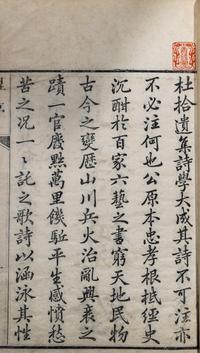 杜拾遺集詩學大成其詩不可注亦
不必注何也公原本忠孝根抵經史
沉酣於百家六藝之書窮天地民物
古今之變歷山川兵火治亂興衰之
蹟一官廢黜萬里饑驅平生感憤愁
苦之况一〻託之歌詩以涵泳其性